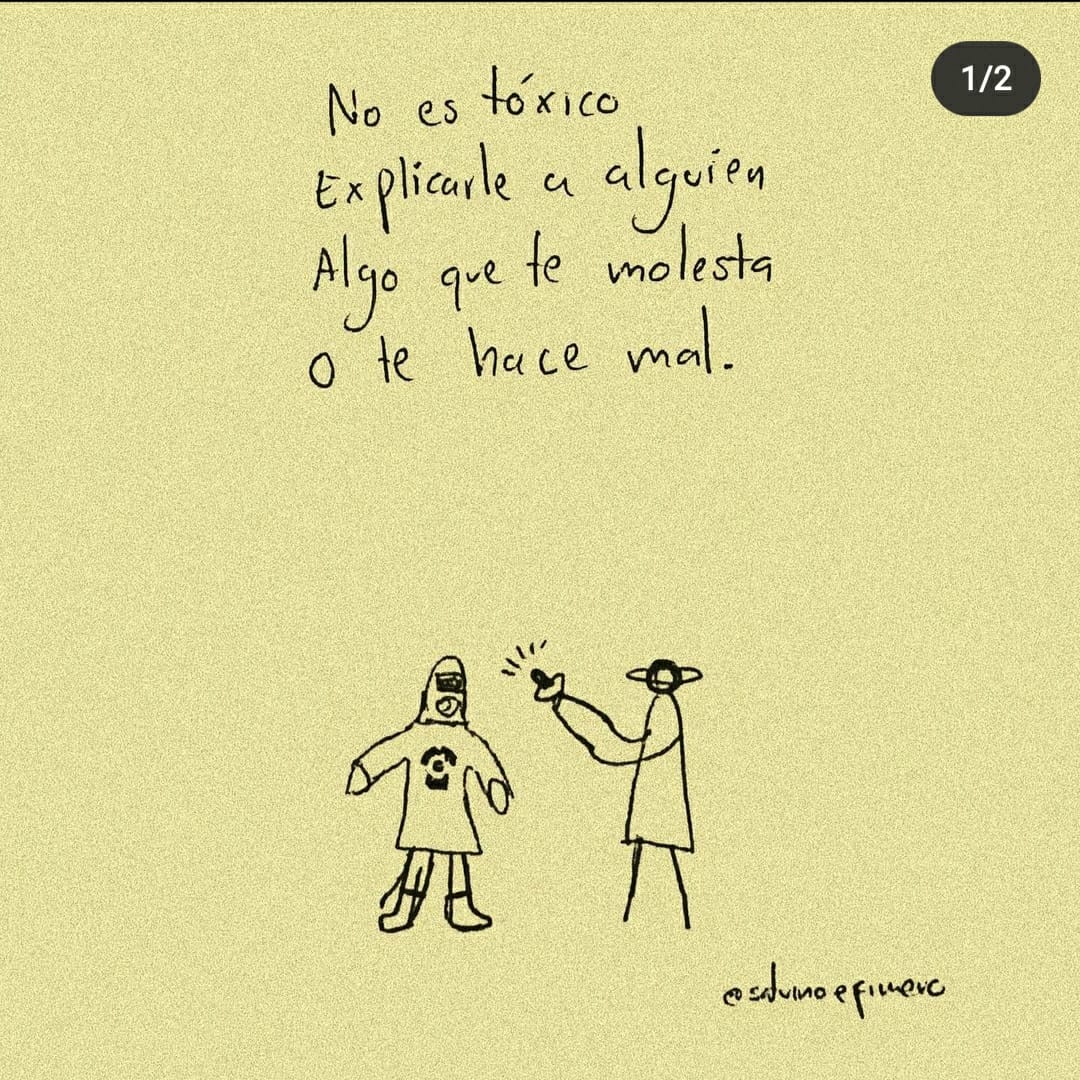 1/2
No es tóxico
Explicarle a alguien
Algo que te molesta
o te hace mal.